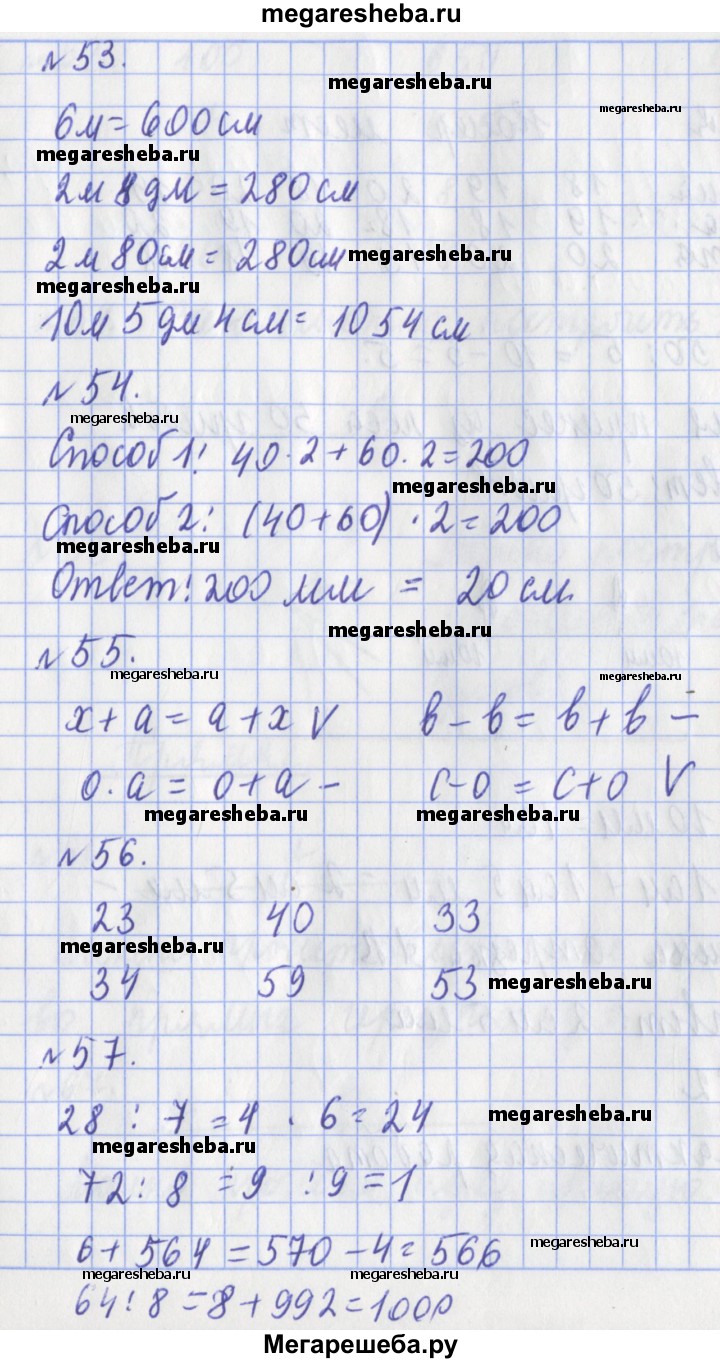 megaresheba.ru
№53.
megaresheba.ru
megaresheba.ru
6м=600см
megaresheba.ru
2м 8дм = 280см
2м 80см = 280см megaresheba.ru
megaresheba.ru
10м 5дм 4см = 1054см
№54.
megaresheba.ru
Способ 1: 40·2+60·2=200
megaresheba.ru
Способ 2: (40+60)·2=200
megaresheba.ru
Ответ: 200 мм = 20 см.
megaresheba.ru
№55.
megaresheba.ru megaresheba.ru
x+a=a+x V b-b=b+b -
0·a=0+a - c-0=c+0 V
megaresheba.ru megaresheba.ru
№56.
23 40 33
megaresheba.ru
34 59 53 megaresheba.ru
№57.
28 : 7 = 4 · 6 = 24 megaresheba.ru
megaresheba.ru
72 : 8 = 9 : 9 = 1
6+564=570-4=566 megaresheba.ru
megaresheba.ru megaresheba.ru
64:8=8+992=1000
Мегарешеба.ру